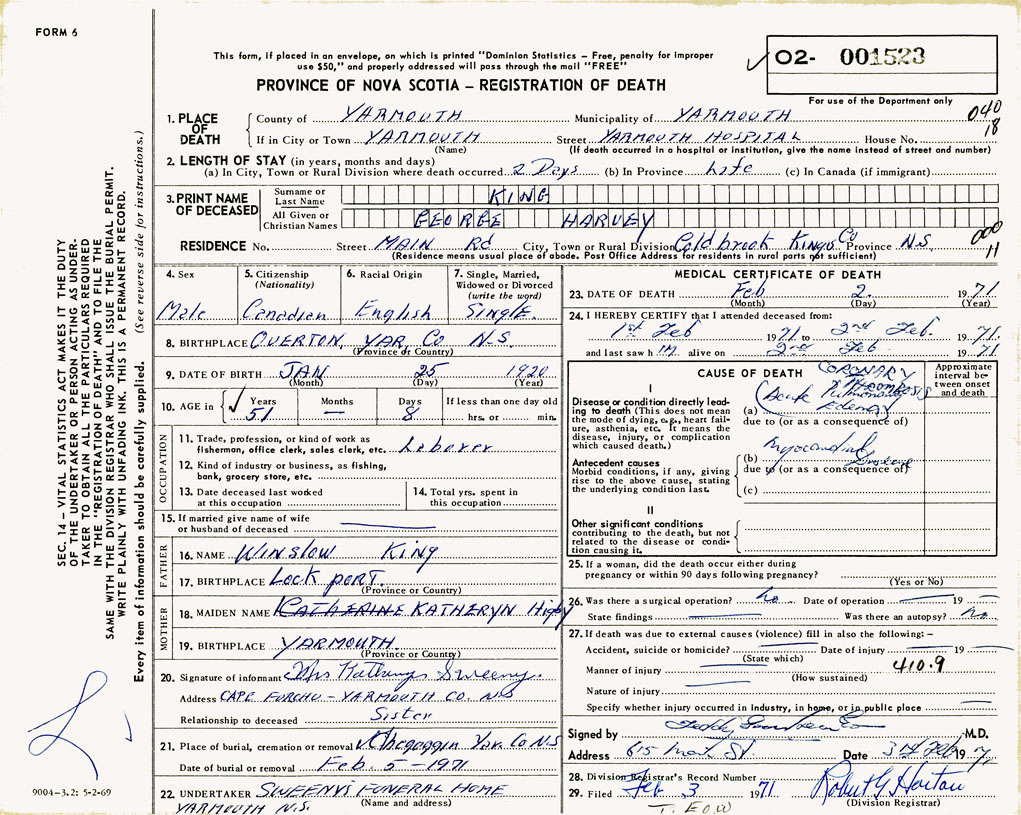 FORM 6
This form, if placed in an envelope, on which is printed "Dominion Statistics – Free, penalty for improper
use $50," and properly addressed will pass through the mail "FREE"
PROVINCE OF NOVA SCOTIA – REGISTRATION OF DEATH
02- 001523
For use of the Department only
040
18
1. PLACE OF DEATH
County of YARMOUTH Municipality of YARMOUTH
If in City or Town YARMOUTH Street YARMOUTH HOSPITAL House No.
(Name) (If death occurred in a hospital or institution, give the name instead of street and number)
2. LENGTH OF STAY (in years, months and days)
(a) In City, Town or Rural Division where death occurred 2 Days (b) In Province Life (c) In Canada (if immigrant)
3. PRINT NAME OF DECEASED
Surname or Last Name KING
All Given or Christian Names GEORGE HARVEY
RESIDENCE No. Street MAIN Rd City, Town or Rural Division Coldbrook Kings Co Province N.S.
(Residence means usual place of abode. Post Office Address for residents in rural parts not sufficient)
000
11
4. Sex Male
5. Citizenship (Nationality) Canadian
6. Racial Origin English
7. Single, Married, Widowed or Divorced (write the word) Single.
8. BIRTHPLACE OVERTON, YAR. Co N.S.
(Province or Country)
9. DATE OF BIRTH JAN 25 1920
(Month) (Day) (Year)
10. AGE in ✓ Years 51 Months — Days 8 If less than one day old hrs. or min.
OCCUPATION
11. Trade, profession, or kind of work as
fisherman, office clerk, sales clerk, etc. Laborer
12. Kind of industry or business, as fishing,
bank, grocery store, etc.
13. Date deceased last worked
at this occupation
14. Total yrs. spent in
this occupation
15. If married give name of wife
or husband of deceased
FATHER
16. NAME Winslow King
17. BIRTHPLACE Lock port.
(Province or Country)
MOTHER
18. MAIDEN NAME CATHERINE KATHERYN Higby
19. BIRTHPLACE YARMOUTH.
(Province or Country)
20. Signature of informant Mrs Sweeny.
Address CAPE FORCHU – YARMOUTH CO. N.S
Relationship to deceased Sister
21. Place of burial, cremation or removal Chegoggin Yar. Co N.S
Date of burial or removal Feb. 5 – 1971
22. UNDERTAKER SWEENYS FUNERAL HOME
(Name and address)
YARMOUTH N.S.
MEDICAL CERTIFICATE OF DEATH
23. DATE OF DEATH Feb 2. 1971
(Month) (Day) (Year)
24. I HEREBY CERTIFY that I attended deceased from:
1st Feb 1971 to 2nd Feb. 1971.
and last saw h im alive on 2nd Feb 1971
CAUSE OF DEATH
Approximate interval between onset and death
I
Disease or condition directly leading to death (This does not
mean the mode of dying, e.g., heart failure, asthenia, etc. It means the
disease, injury, or complication
which caused death.)
CORONARY THROMBOSIS
(a) Acute Pulmonary Edema
due to (or as a consequence of)
Antecedent causes
Morbid conditions, if any, giving
rise to the above cause, stating
the underlying condition last.
(b) Myocardial
due to (or as a consequence of)
(c)
II
Other significant conditions
contributing to the death, but not
related to the disease or condition causing it.
25. If a woman, did the death occur either during
pregnancy or within 90 days following pregnancy?
(Yes or No)
26. Was there a surgical operation? no Date of operation 19
State findings Was there an autopsy? no
27. If death was due to external causes (violence) fill in also the following: –
Accident, suicide or homicide? Date of injury 19
(State which)
Manner of injury 410.9
(How sustained)
Nature of injury
Specify whether injury occurred in industry, in home, or in public place
Signed by M.D.
Address 615 Main St. Date 3rd Feb 1971
28. Division Registrar's Record Number
29. Filed Feb 3 1971 Robert G Horton
(Division Registrar)
SEC. 14 – VITAL STATISTICS ACT MAKES IT THE DUTY
OF THE UNDERTAKER OR PERSON ACTING AS UNDER-
TAKER TO OBTAIN ALL THE PARTICULARS REQUIRED
IN THE "REGISTRATION OF DEATH" AND TO FILE THE
SAME WITH THE DIVISION REGISTRAR WHO SHALL ISSUE THE BURIAL PERMIT.
WRITE PLAINLY WITH UNFADING INK. THIS IS A PERMANENT RECORD.
Every item of information should be carefully supplied. (See reverse side for instructions.)
9004-3.2: 5-2-69